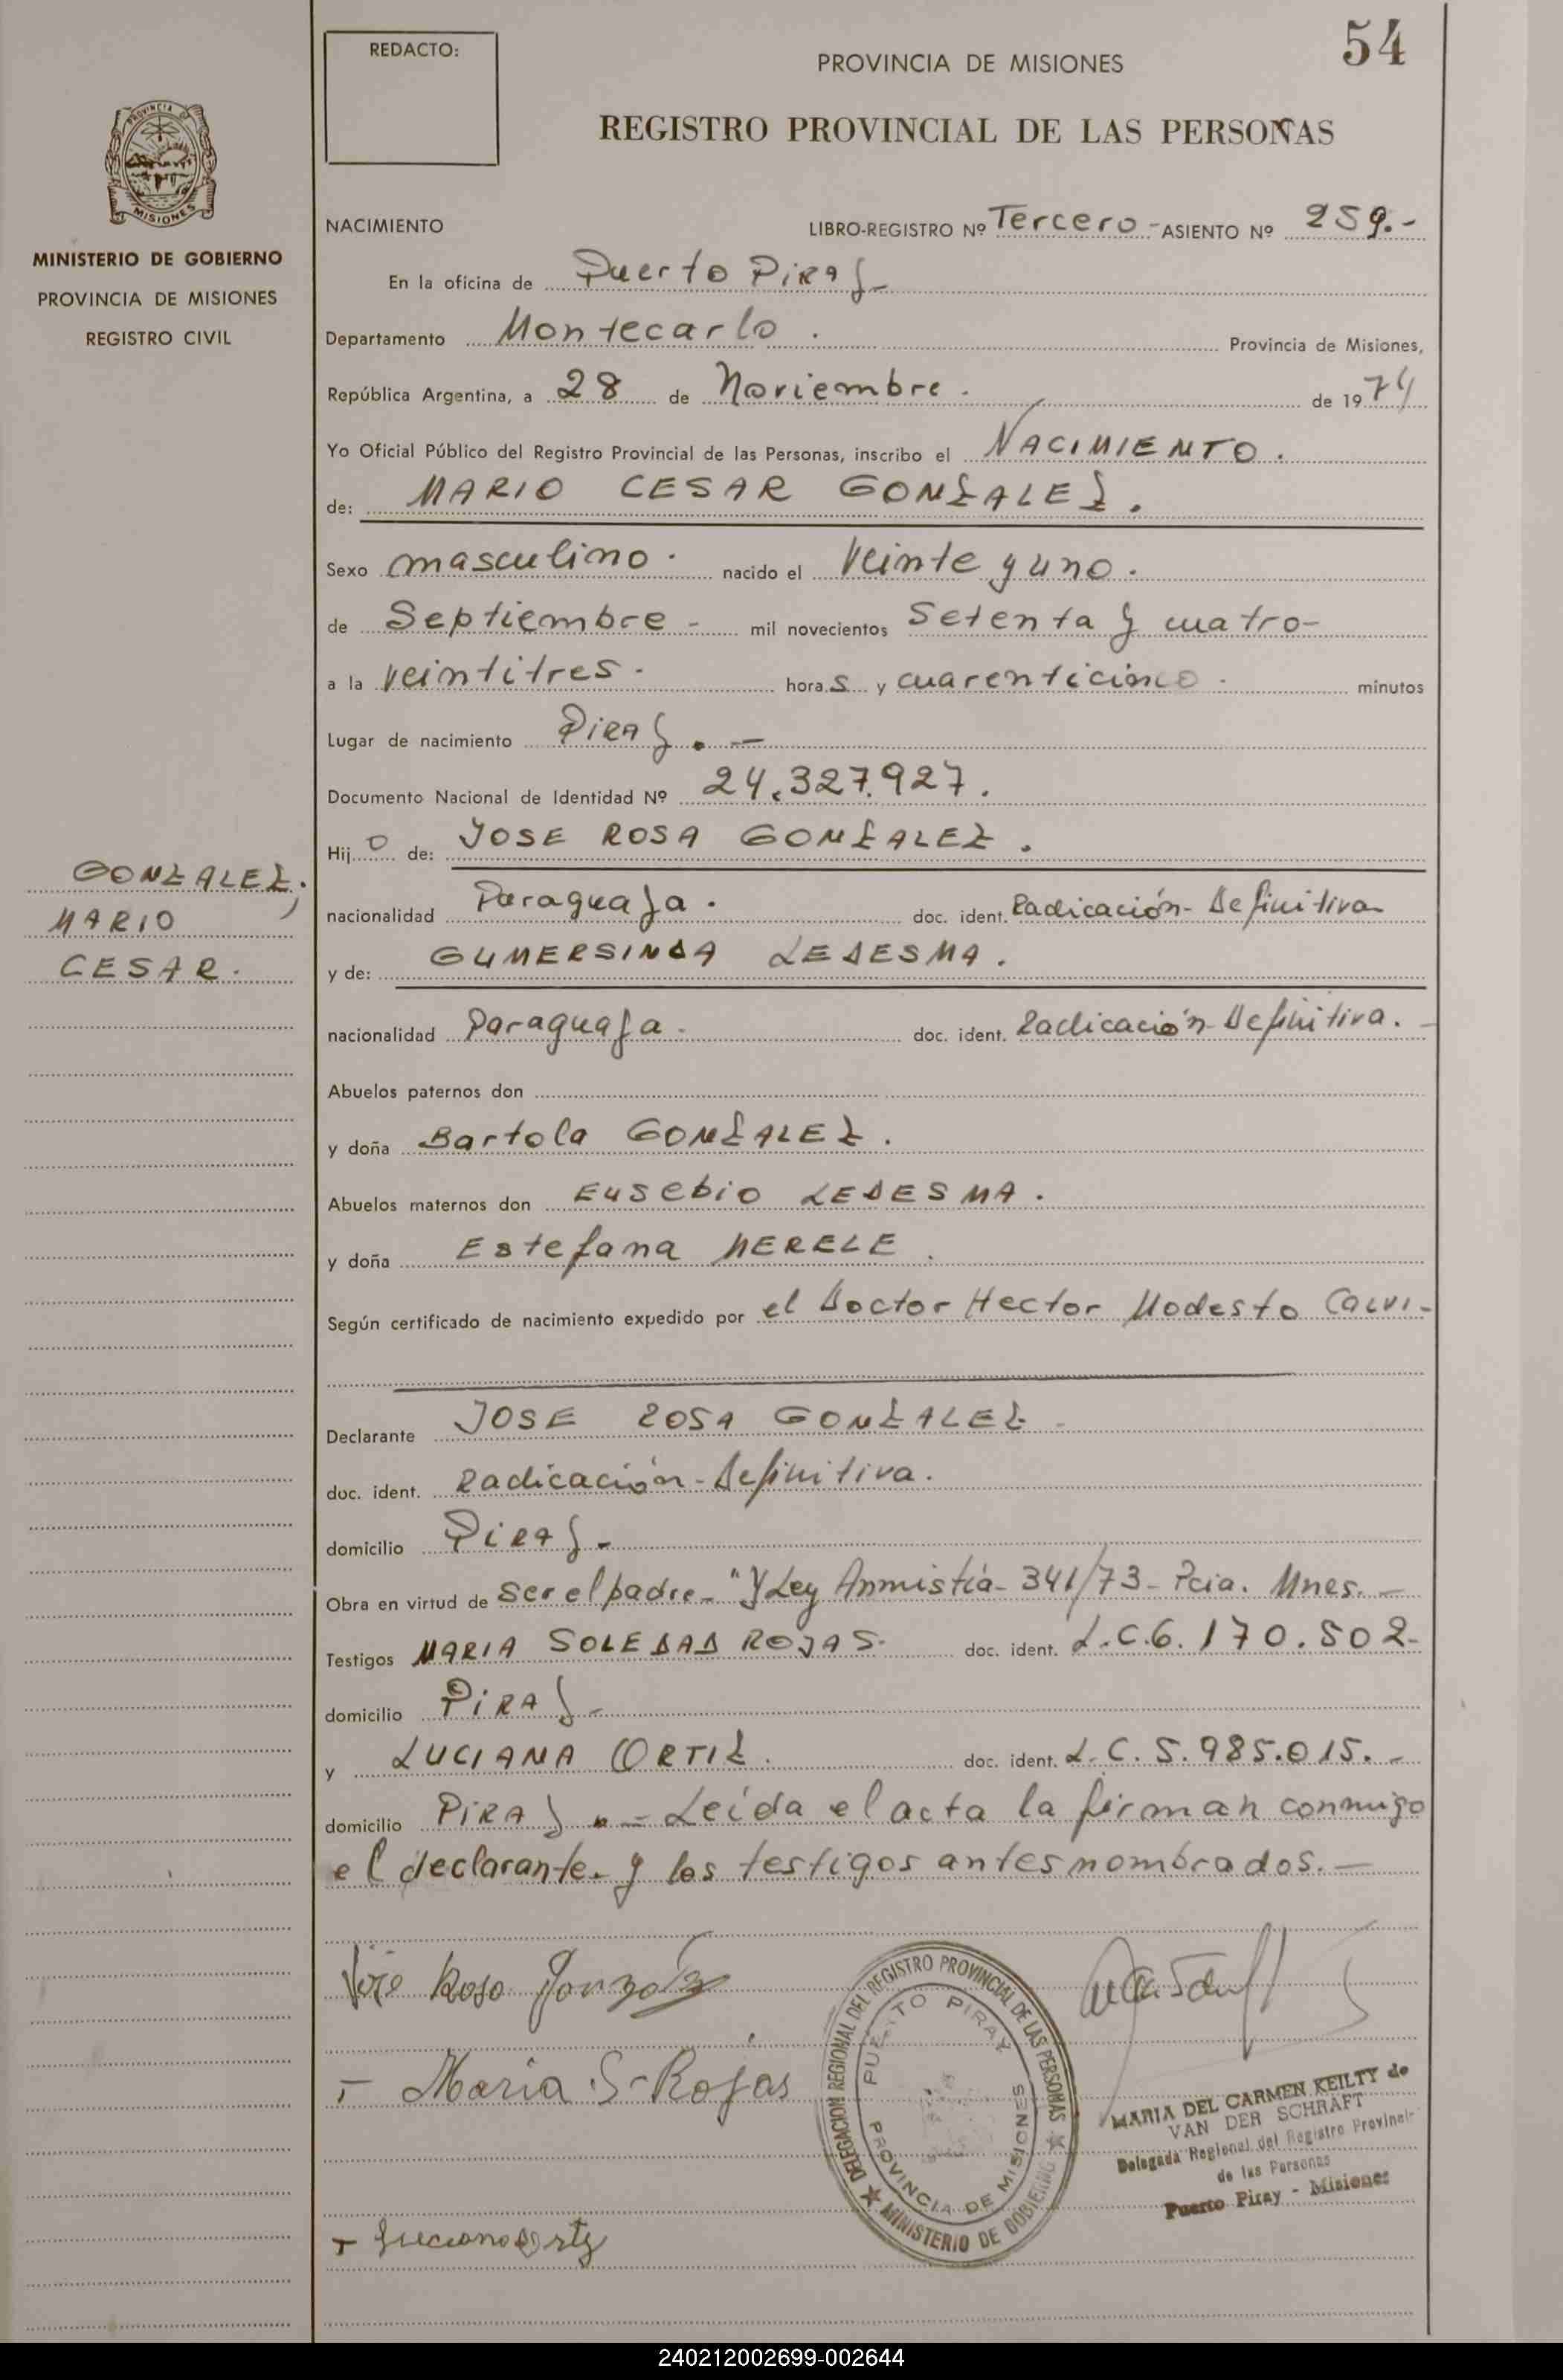 54
REDACTO:
PROVINCIA DE MISIONES
REGISTRO PROVINCIAL DE LAS PERSONAS
PROVINCIA DE
MISIONES
MINISTERIO DE GOBIERNO
PROVINCIA DE MISIONES
REGISTRO CIVIL
NACIMIENTO LIBRO-REGISTRO Nº Tercero - ASIENTO Nº 259.-
En la oficina de Puerto Piray -
Departamento Montecarlo. Provincia de Misiones,
República Argentina, a 28 de Noviembre. de 1974
Yo Oficial Público del Registro Provincial de las Personas, inscribo el NACIMIENTO.
de: MARIO CESAR GONZALEZ.
Sexo masculino. nacido el Veinte y uno.
de Septiembre - mil novecientos Setenta y cuatro-
a la veintitres. horas y cuarenticinco. minutos
Lugar de nacimiento PIRAY. —
Documento Nacional de Identidad Nº 24.327.927.
Hijo de: JOSE ROSA GONZALEZ.
nacionalidad Paraguaya. doc. ident. Radicación- Definitiva
y de: GUMERSINDA LEDESMA.
nacionalidad Paraguaya. doc. ident. Radicación Definitiva. -
Abuelos paternos don
y doña Bartola GONZALEZ.
Abuelos maternos don Eusebio LEDESMA.
y doña Estefana MERELE.
Según certificado de nacimiento expedido por el Doctor Hector Modesto CALVI-
Declarante JOSE ROSA GONZALEZ-
doc. ident. Radicación-Definitiva.
domicilio PIRAY-
Obra en virtud de ser el padre-"Y Ley Anmistía- 341/73- Pcia. Mnes. -
Testigos MARIA SOLEDAD ROJAS. doc. ident. L.C.6.170.502-
domicilio PIRAY-
y LUCIANA ORTIZ. doc. ident. L.C. 5.985.015. -
domicilio PIRAY. = Leída el acta la firman conmigo
el declarante. y los testigos antes nombrados. —
GONZALEZ,
MARIO
CESAR.
José Rosa Gonzalez
- Maria S- Rojas
- Luciana Ortiz
DELEGACION REGIONAL DEL REGISTRO PROVINCIAL DE LAS PERSONAS
MINISTERIO DE GOBIERNO
PUERTO PIRAY
PROVINCIA DE MISIONES
MARIA DEL CARMEN KEILTY de
VAN DER SCHRAFT
Delegada Regional del Registro Provincial
de las Personas
Puerto Piray - Misiones
240212002699-002644